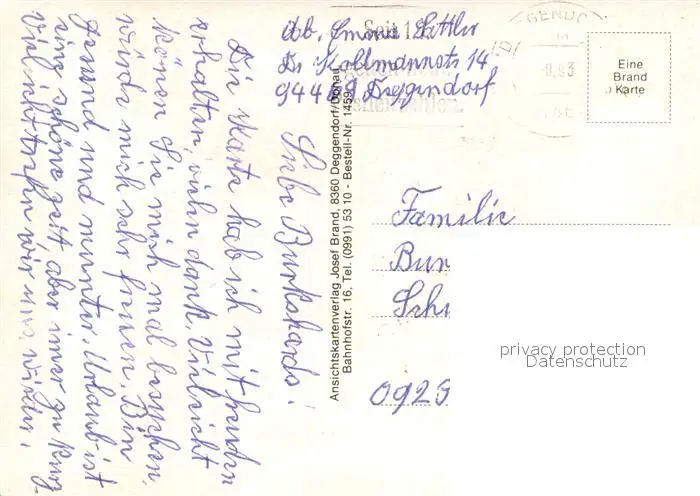 Abs. Emma Sattler
Dr. Kollmannstr 14
94469 Deggendorf
Seit 1
GENDO
-8.93
Eine
Brand
Karte
Liebe Burkhards!
Die Karte hab ich mit freuden
erhalten, vielen dank, Vielleicht
könen Sie mich mal besuchen,
würde mich sehr freuen. Bin
gesund und munter. Urlaub ist
eine schöne zeit aber imer zu kurz
Vieleicht treffen wir uns wieder,
Ansichtskartenverlag Josef Brand, 8360 Deggendorf/Donau
Bahnhofstr. 16, Tel. (0991) 53 10 - Bestell-Nr. 1459
Familie
Bur
Schi
privacy protection
Datenschutz
0925